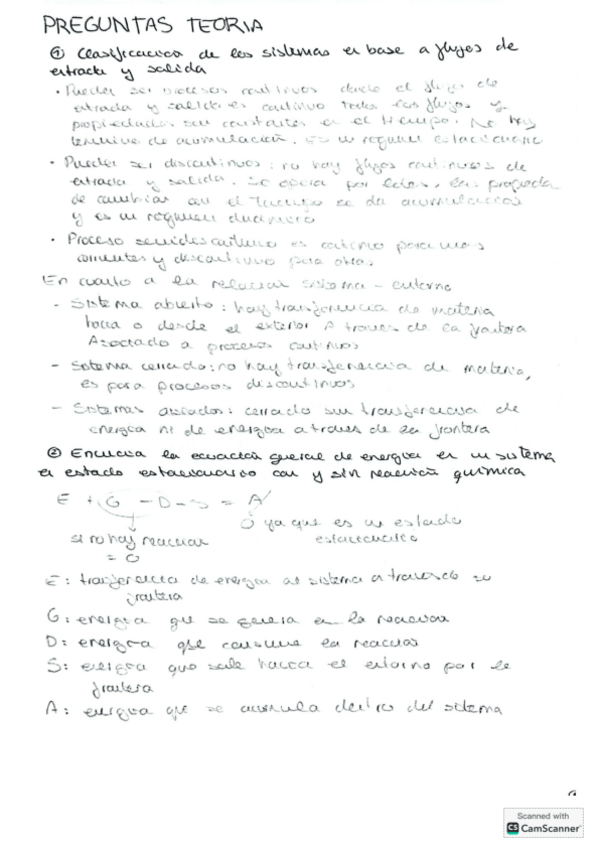 PREGUNTAS TEORIA
① Clasificación de los sistemas en base a flujos de
entrada y salida
• Pueden ser procesos continuos donde el flujo de
entrada y salida es continuo todos los flujos y
propiedades son constantes en el tiempo. No hay
termino de acumulación. Es un regimen estacionario
• Pueden ser discontinuos: no hay flujos continuos de
entrada y salida. Se opera por lotes, las propieda
de cambian con el tiempo se da acumulación
y es un régimen dinámico
• Proceso semidescontinuo es continuo para unas
corrientes y discontinuo para otras.
En cuanto a la relación sistema - entorno
- Sistema abierto: hay transferencia de materia
hacia o desde el exterior A traves de la frontera
Asociado a procesos continuos
- Sistema cerrado: no hay transferencia de materia,
es para procesos discontinuos
- Sistemas aislados: cerrado sin transferencia de
energia ni de energia a traves de la frontera
② Enuncia la ecuación general de energia en un sistema
en estado estacionario con y sin reacción química
E + G - D - S = A
0 ya que es un estado
si no hay reaccion estacionario
= 0
E: transferencia de energia al sistema a traves de su
frontera
G: energia que se genera en la reaccion
D: energia que consume la reaccion
S: energia que sale hacia el entorno por la
frontera
A: energia que se acumula dentro del sistema
Scanned with
CS CamScanner